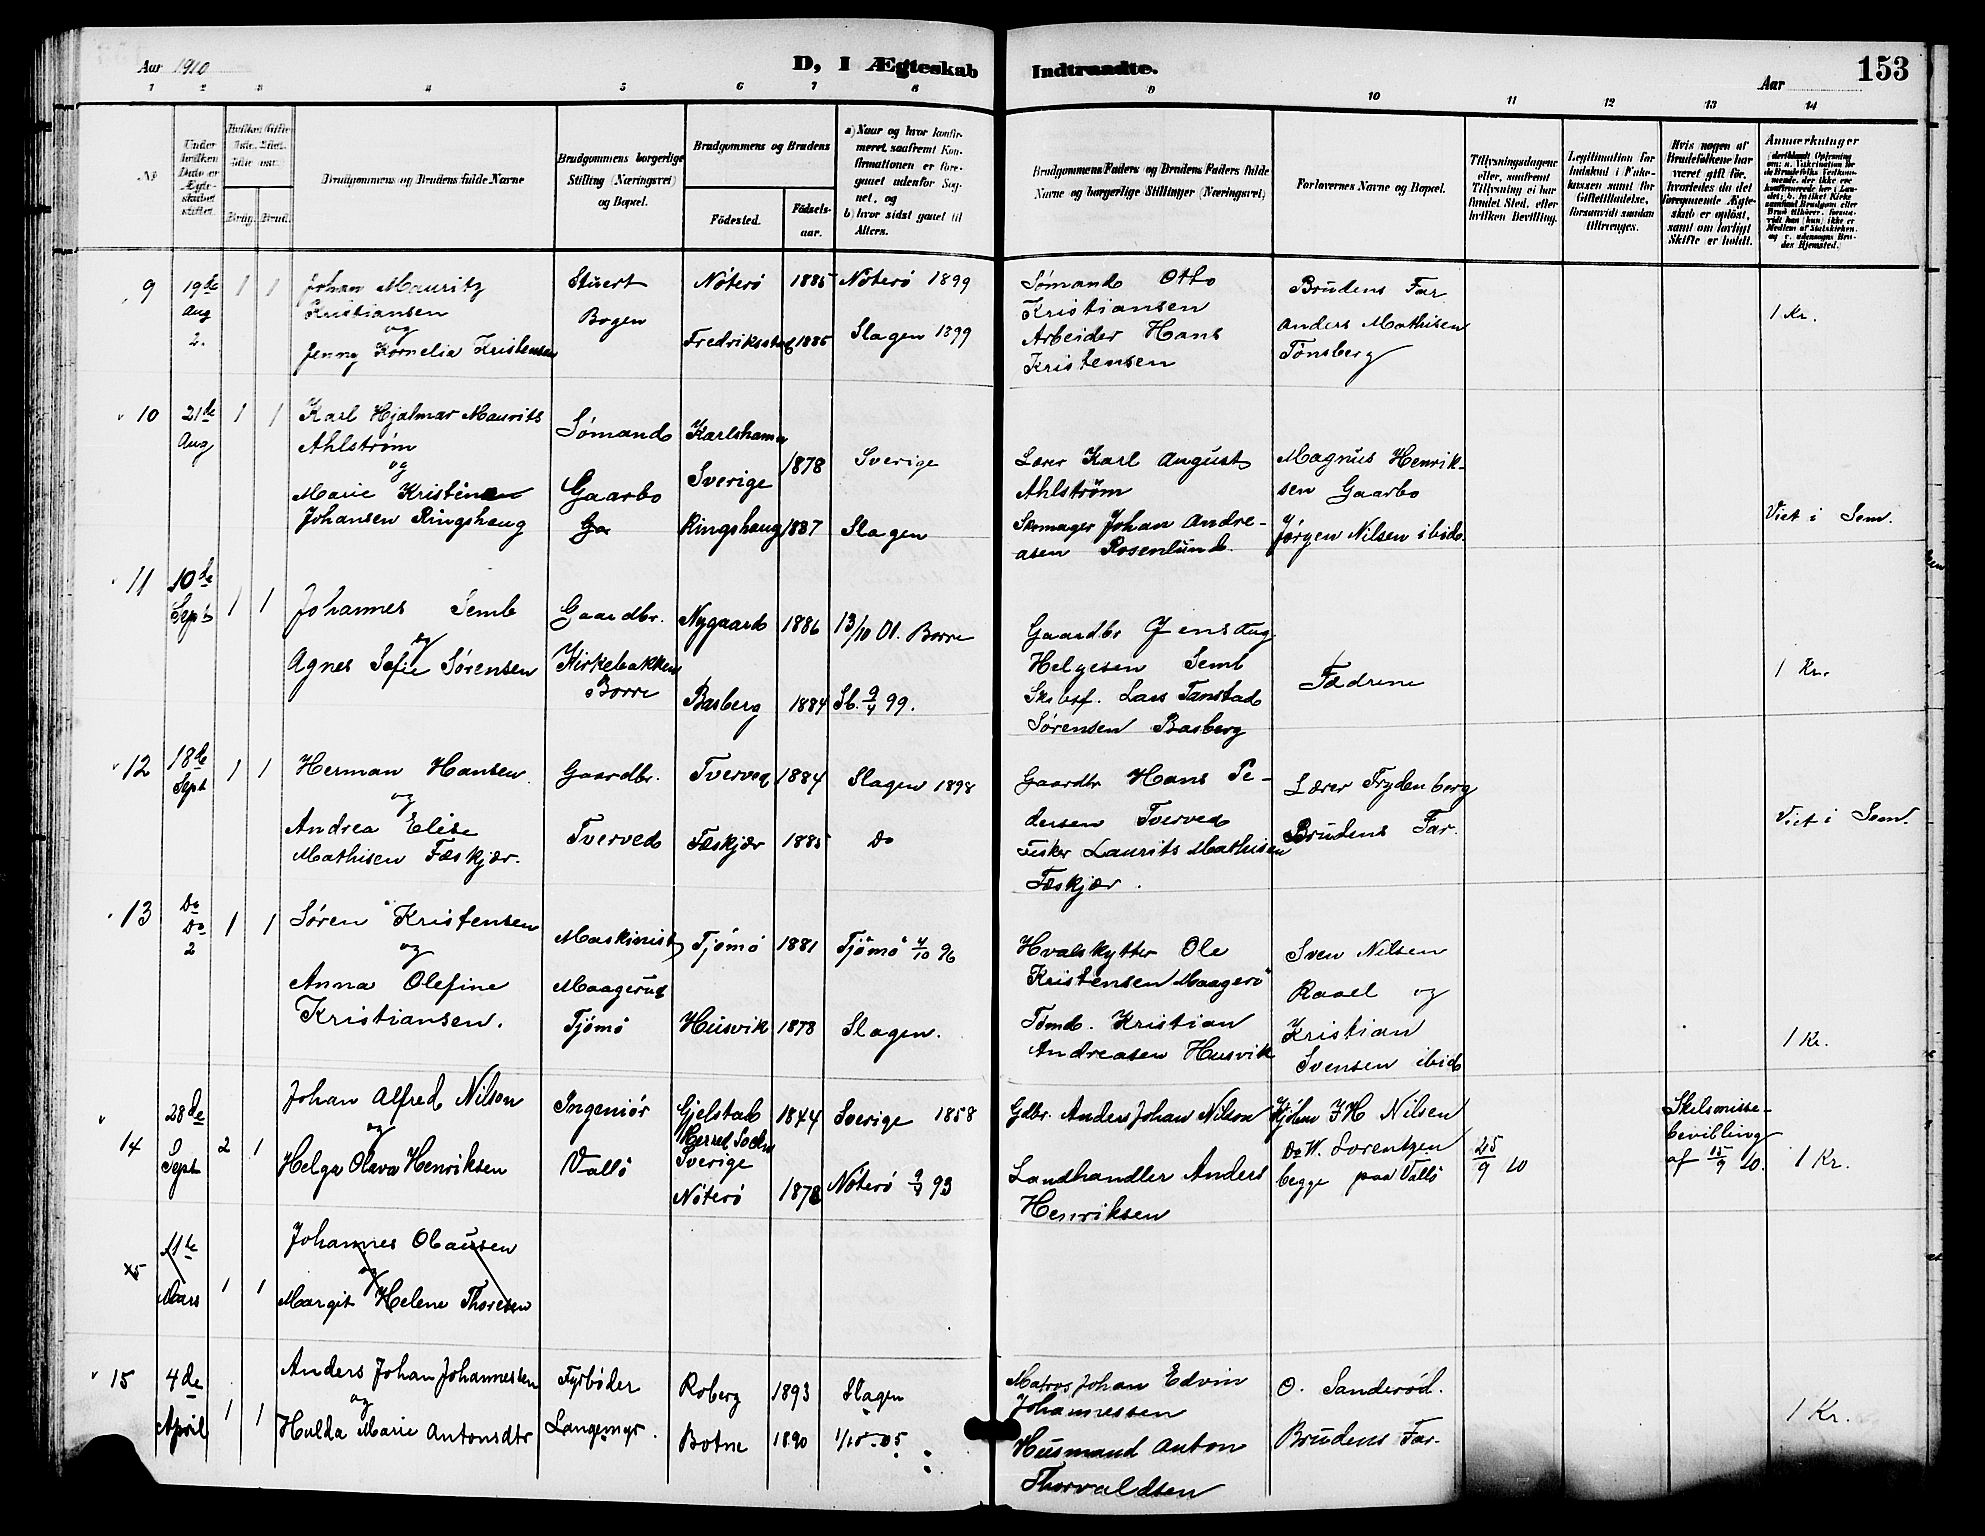 Aar 1910
D, I Ægteskab Indtraadte.
Aar
153
1 2 3 4 5 6 7 8 9 10 11 12 13 14
No
Under hvilken Dato er Ægteskabet stiftet.
Brudgommens og Brudens fulde Navne
Brudgommens borgerlige Stilling (Næringsvei) og Bopæl.
Brudgommens og Brudens
Fødested.
Fødselsaar.
a) Naar og hvor konfirmeret, saafremt Konfirmationen er foregaaet udenfor Sognet, og
b) hvor sidst gaaet til Alters.
Brudgommens Faders og Brudens Faders fulde Navne og borgerlige Stillinger (Næringsvei)
Forlovernes Navne og Bopæl.
Tillysningsdagene eller, saafremt Tillysning ei har fundet Sted, efter hvilken Bevilling.
Legitimation for Indskud i Enkekassen samt for Giftetilladelse, forsaavidt saadan tiltrænges.
Hvis nogen af Brudefolkene har været gift før, hvorledes da det foregaaende Ægteskab er opløst, samt om lovligt Skifte er holdt.
Anmærkninger
9 19de Aug 2. 1 1 Johan Mauritz Kristiansen og Jenny Kornelia Kristensen
Stuert Bogen
Nöterö 1885 Nöterö 1899
Fredriksstad 1885 Slagen 1899
Sømand Otto Kristiansen
Arbeider Hans Kristensen
Brudens Far
Anders Mathisen Tønsberg
1 Kr.
10 21de Aug 1 1 Karl Hjalmar Maurits Ahlstrøm og Marie Kristine Johansen Ringshaug
Sømand Gaarbo
Karlshamn Sverige 1878 Sverige
Ringshaug 1887 Slagen
Lærer Karl August Ahlström
Skomager Johan Andreasen Rosenlund.
Magnus Henriksen Gaarbo
Jørgen Nilsen ibid.
Viet i Sem.
11 10de Sept 1 1 Johannes Semb og Agnes Sofie Sørensen
Gaardbr. Kirkebakken Borre
Nygaard 1886 13/10 01. Borre
Basberg 1884 Sl. 9/4 99.
Gaardbr Jens Aug Helgesen Semb
Skibsf. Lars Tanstad Sørensen Basberg
Fædrene
1 Kr.
12 18de Sept 1 1 Herman Hansen og Andrea Elise Mathisen Fæskjær.
Gaardbr. Tverved
Tverved 1884 Slagen 1898
Fæskjær 1885 Do
Gaardbr Hans Pedersen Tverved
Fisker Laurits Mathisen Fæskjær.
Lærer Frydenberg
Brudens Far.
Viet i Sem.
13 Do Do 2 1 1 Søren Kristensen og Anna Olefine Kristiansen.
Maskinist Maagerud Tjömö
Tjömö 1881 Tjömö 4/10 96
Husvik 1878 Slagen.
Hvalskytter Ole Kristensen Maagerö
Tömb. Kristian Andreasen Husvik
Sven Nilsen Raael og
Kristian Svensen ibid
1 Kr.
14 28de Sept 2 1 Johan Alfred Nilson og Helga Olava Henriksen
Ingeniör Vallö
Gjelstad Sverige 1844 Sverige 1858
Nöterö 1878 Nöterö 9/4 93
Gdbr. Anders Johan Nilson
Landhandler Anders Henriksen
J H Nilsen
Do W. Lorentzen
begge paa Vallö
25/9 10
Skilsmissebevilling af 15/9 10.
1 Kr.
11te Mars 1 1 Johannes Olausen og Margit Helene Thoresen
15 4de April 1 1 Anders Johan Johannessen og Hulda Marie Antonsdtr
Fyrbøder Langemyr.
Roberg 1893 Slagen
Botne 1890 1/10 - 05
Matros Johan Edvin Johannessen
Husmand Anton Thorvaldsen
O. Sanderöd.
Brudens Far.
1 Kr.